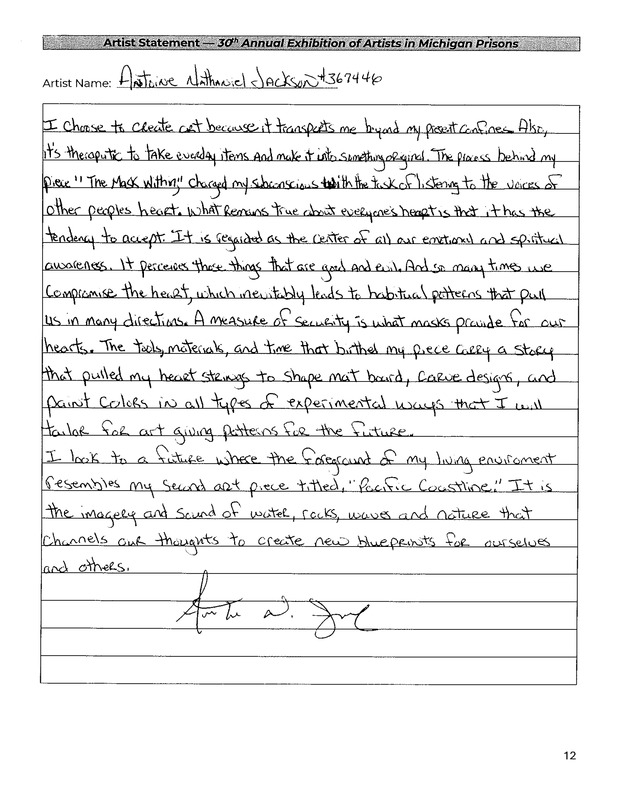 Artist Statement — 30th Annual Exhibition of Artists in Michigan Prisons
Artist Name: Antoine Nathaniel Jackson #367446
I choose to create art because it transports me beyond my present confines. Also,
it's theraputic to take everday items and make it into something original. The process behind my
piece "The Mask Within," charged my subconscious with the task of listening to the voices of
other peoples heart. What remains true about everyone's heart is that it has the
tendency to accept. It is regarded as the center of all our emotional and spiritual
awareness. It perceives those things that are good and evil. And so many times we
compromise the heart, which inevitably leads to habitual patterns that pull
us in many directions. A measure of security is what masks provide for our
hearts. The tools, materials, and time that birthed my piece carry a story
that pulled my heart strings to shape mat board, carve designs, and
paint colors in all types of experimental ways that I will
tailor for art giving patterns for the future.
I look to a future where the foreground of my living enviroment
resembles my second art piece titled, "Pacific Coastline." It is
the imagery and sound of water, rocks, waves and nature that
channels our thoughts to create new blueprints for ourselves
and others.
12